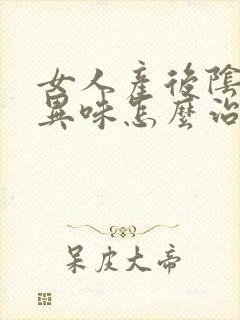 女人產後陰
異味怎麼治
呆皮大帝